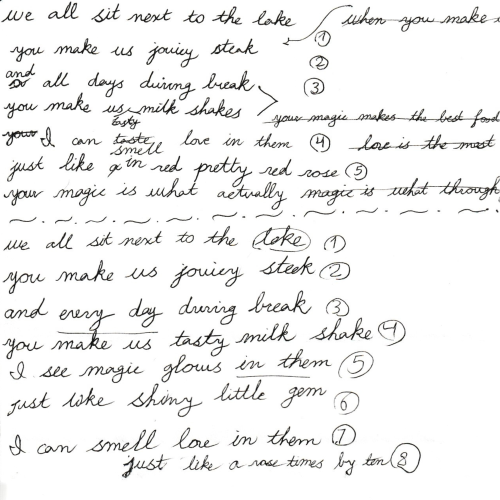 we all sit next to the lake when you make
you make us jouicy steak ①
and ②
So all days during break ③
you make us milk shakes
tasty your magic makes the best food
your I can taste love in them ④ love is the most
smell
just like a in red pretty red rose ⑤
your magic is what actually magic is what through
we all sit next to the lake ①
you make us jouicy steek ②
and every day during break ③
you make us tasty milk shake ④
I see magic glows in them ⑤
just like shiny little gem ⑥
I can smell love in them ⑦
just like a rose times by ten ⑧